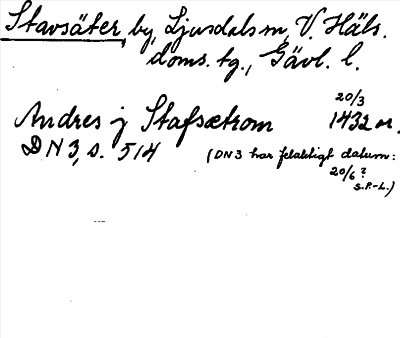 Stavsäter, by, Ljusdals sn, V. Häls.
doms. tg., Gävl. l.
20/3
Andres j Stafsætrom 1432 or.
DN 3, s. 514 (DN 3 har felaktigt datum:
20/6 ?
S.P.-L.)